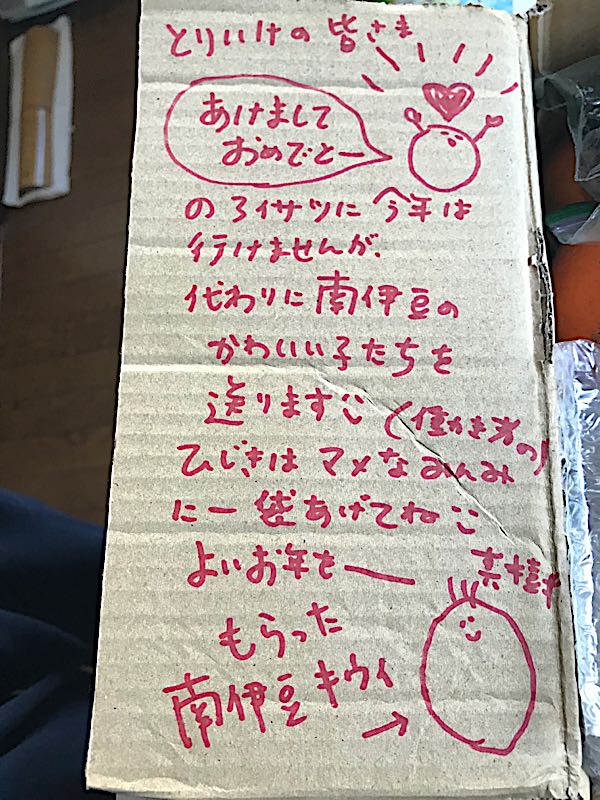 とりいけの皆さま
あけまして
おめでとー
のアイサツに今年は
行けませんが、
代わりに南伊豆の
かわいい子たちを
送ります (働き者の)
ひじきはマメなみんみ
に一袋あげてね
よいお年を—
真樹
もらった
南伊豆キウイ
→